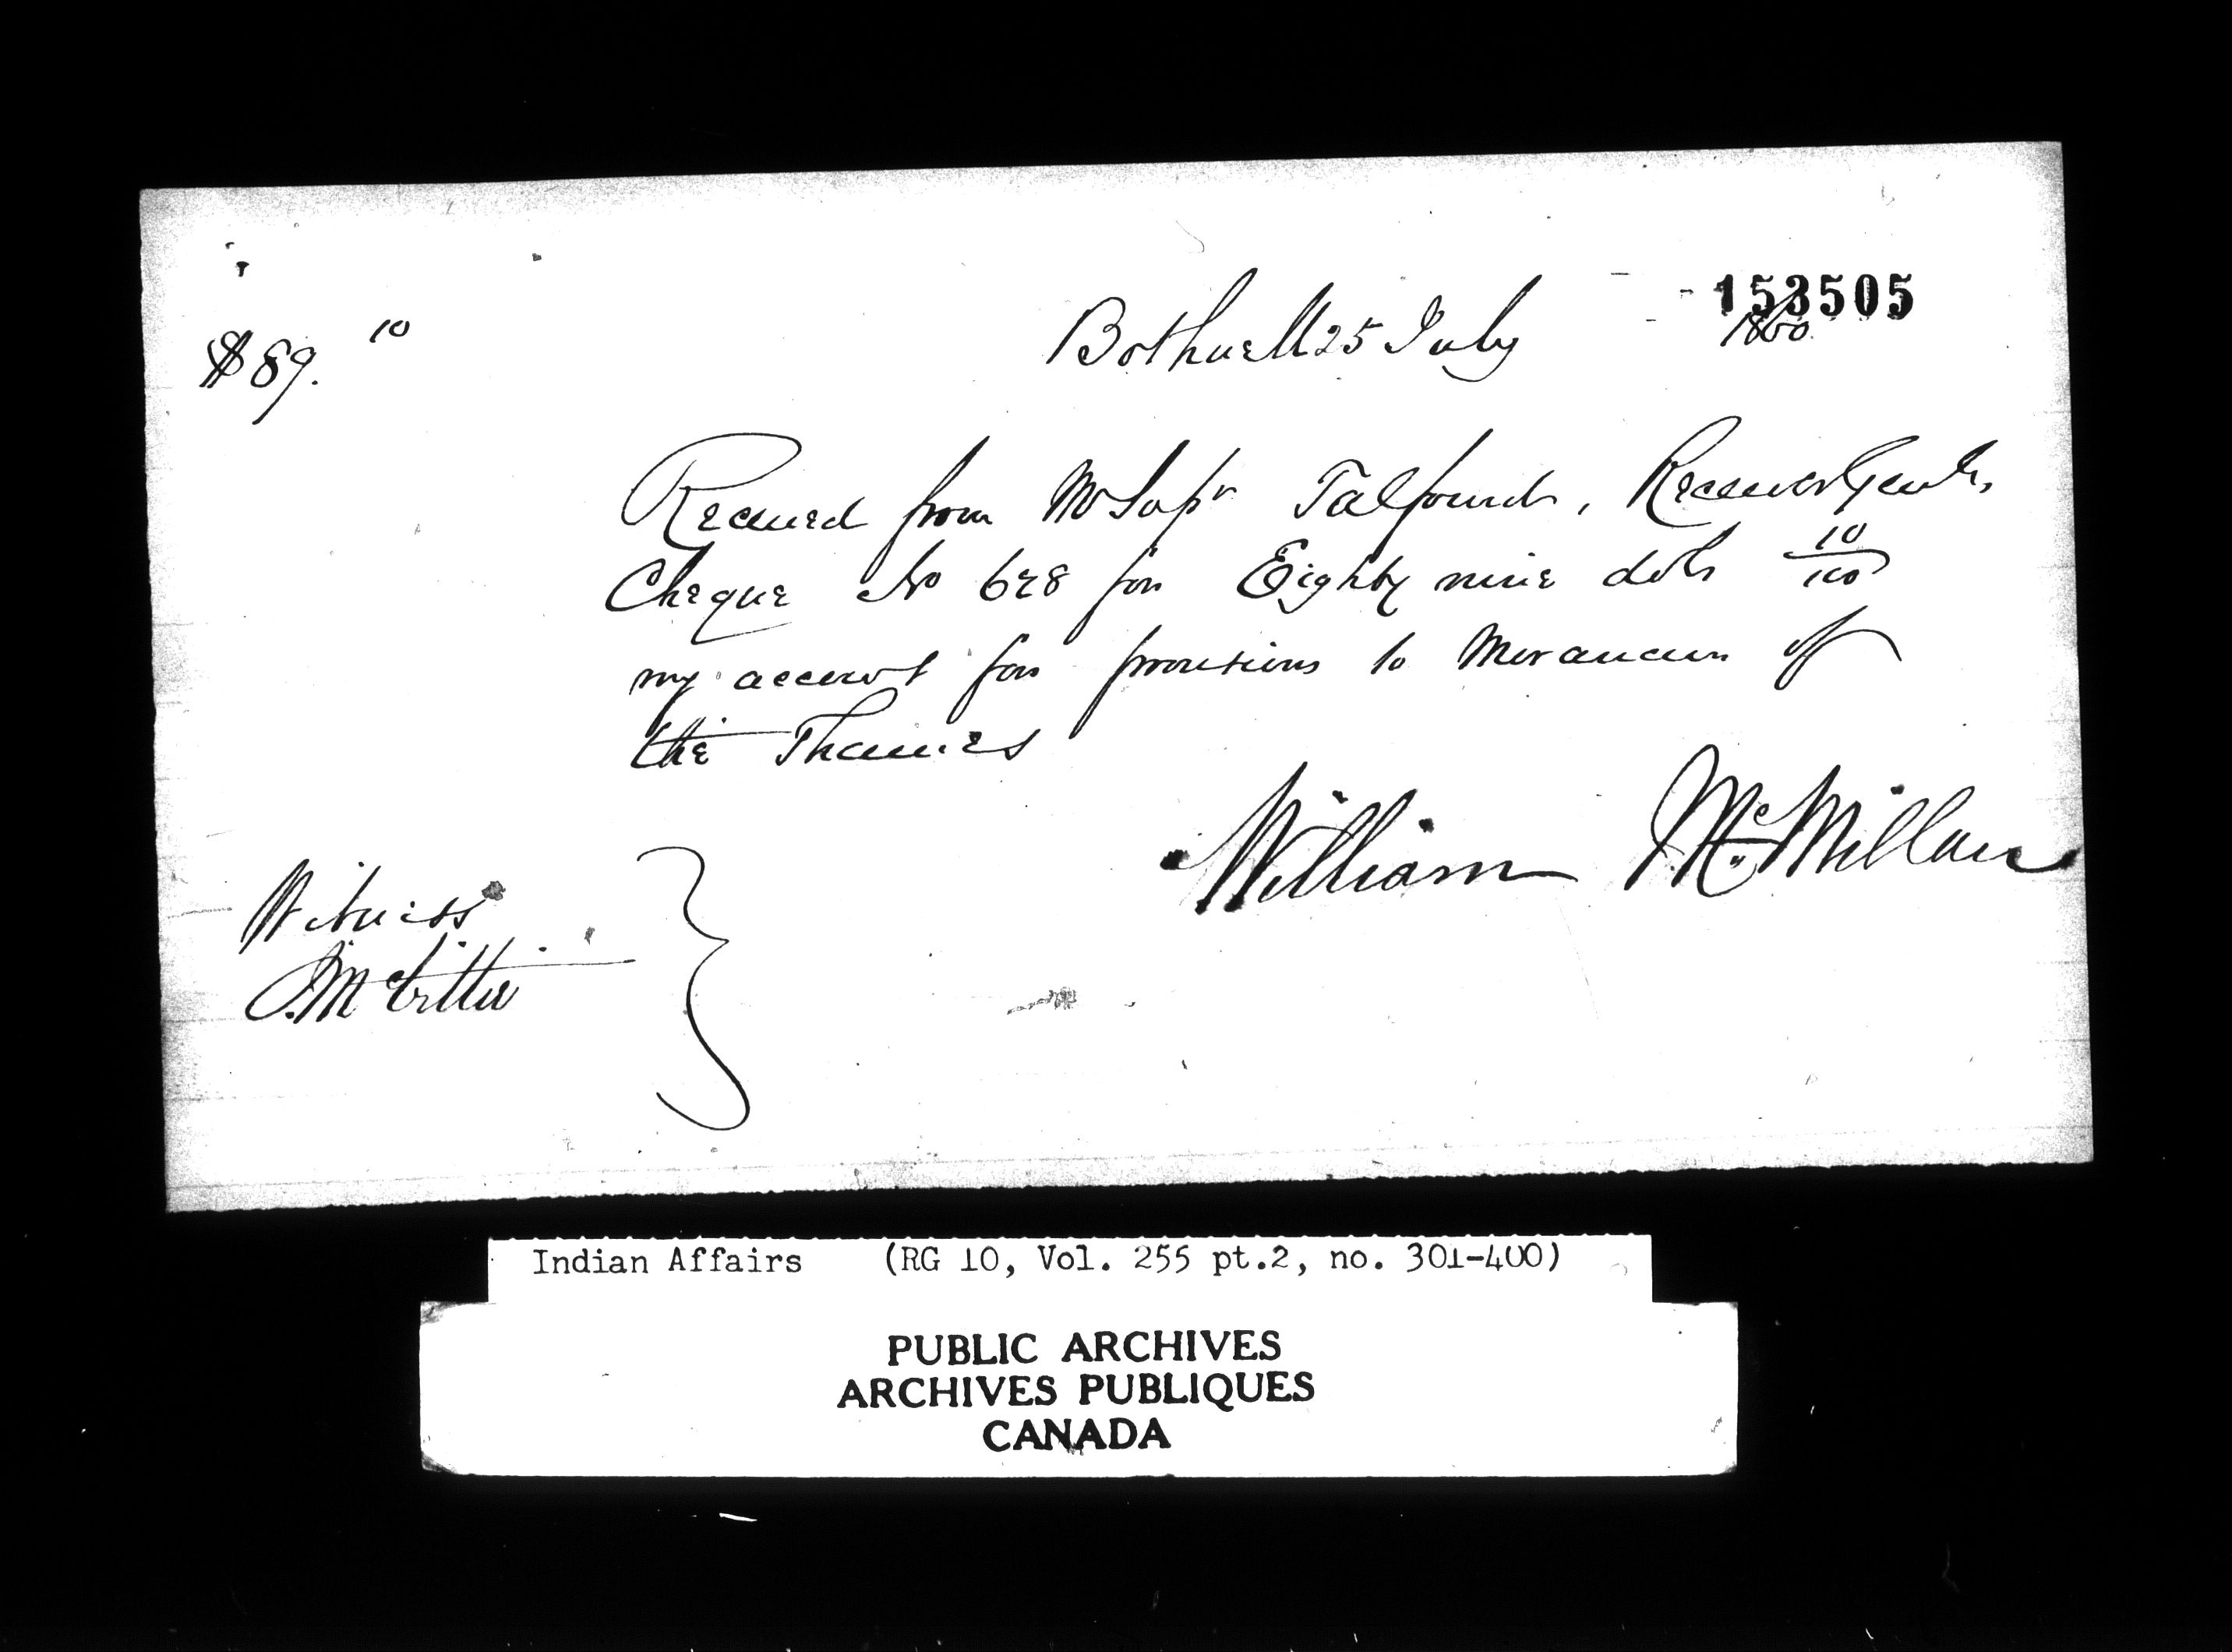 153505
$89. 10
Bothwell 25 July 1860
Received from Mr Supr Talfourd, Receiver Genls,
Cheque No 628 for Eighty nine dols 10/100
my account for provisions to Moravians of
the Thames
William McMillan
Witness
J. McLittle
Indian Affairs (RG 10, Vol. 255 pt.2, no. 301-400)
PUBLIC ARCHIVES
ARCHIVES PUBLIQUES
CANADA